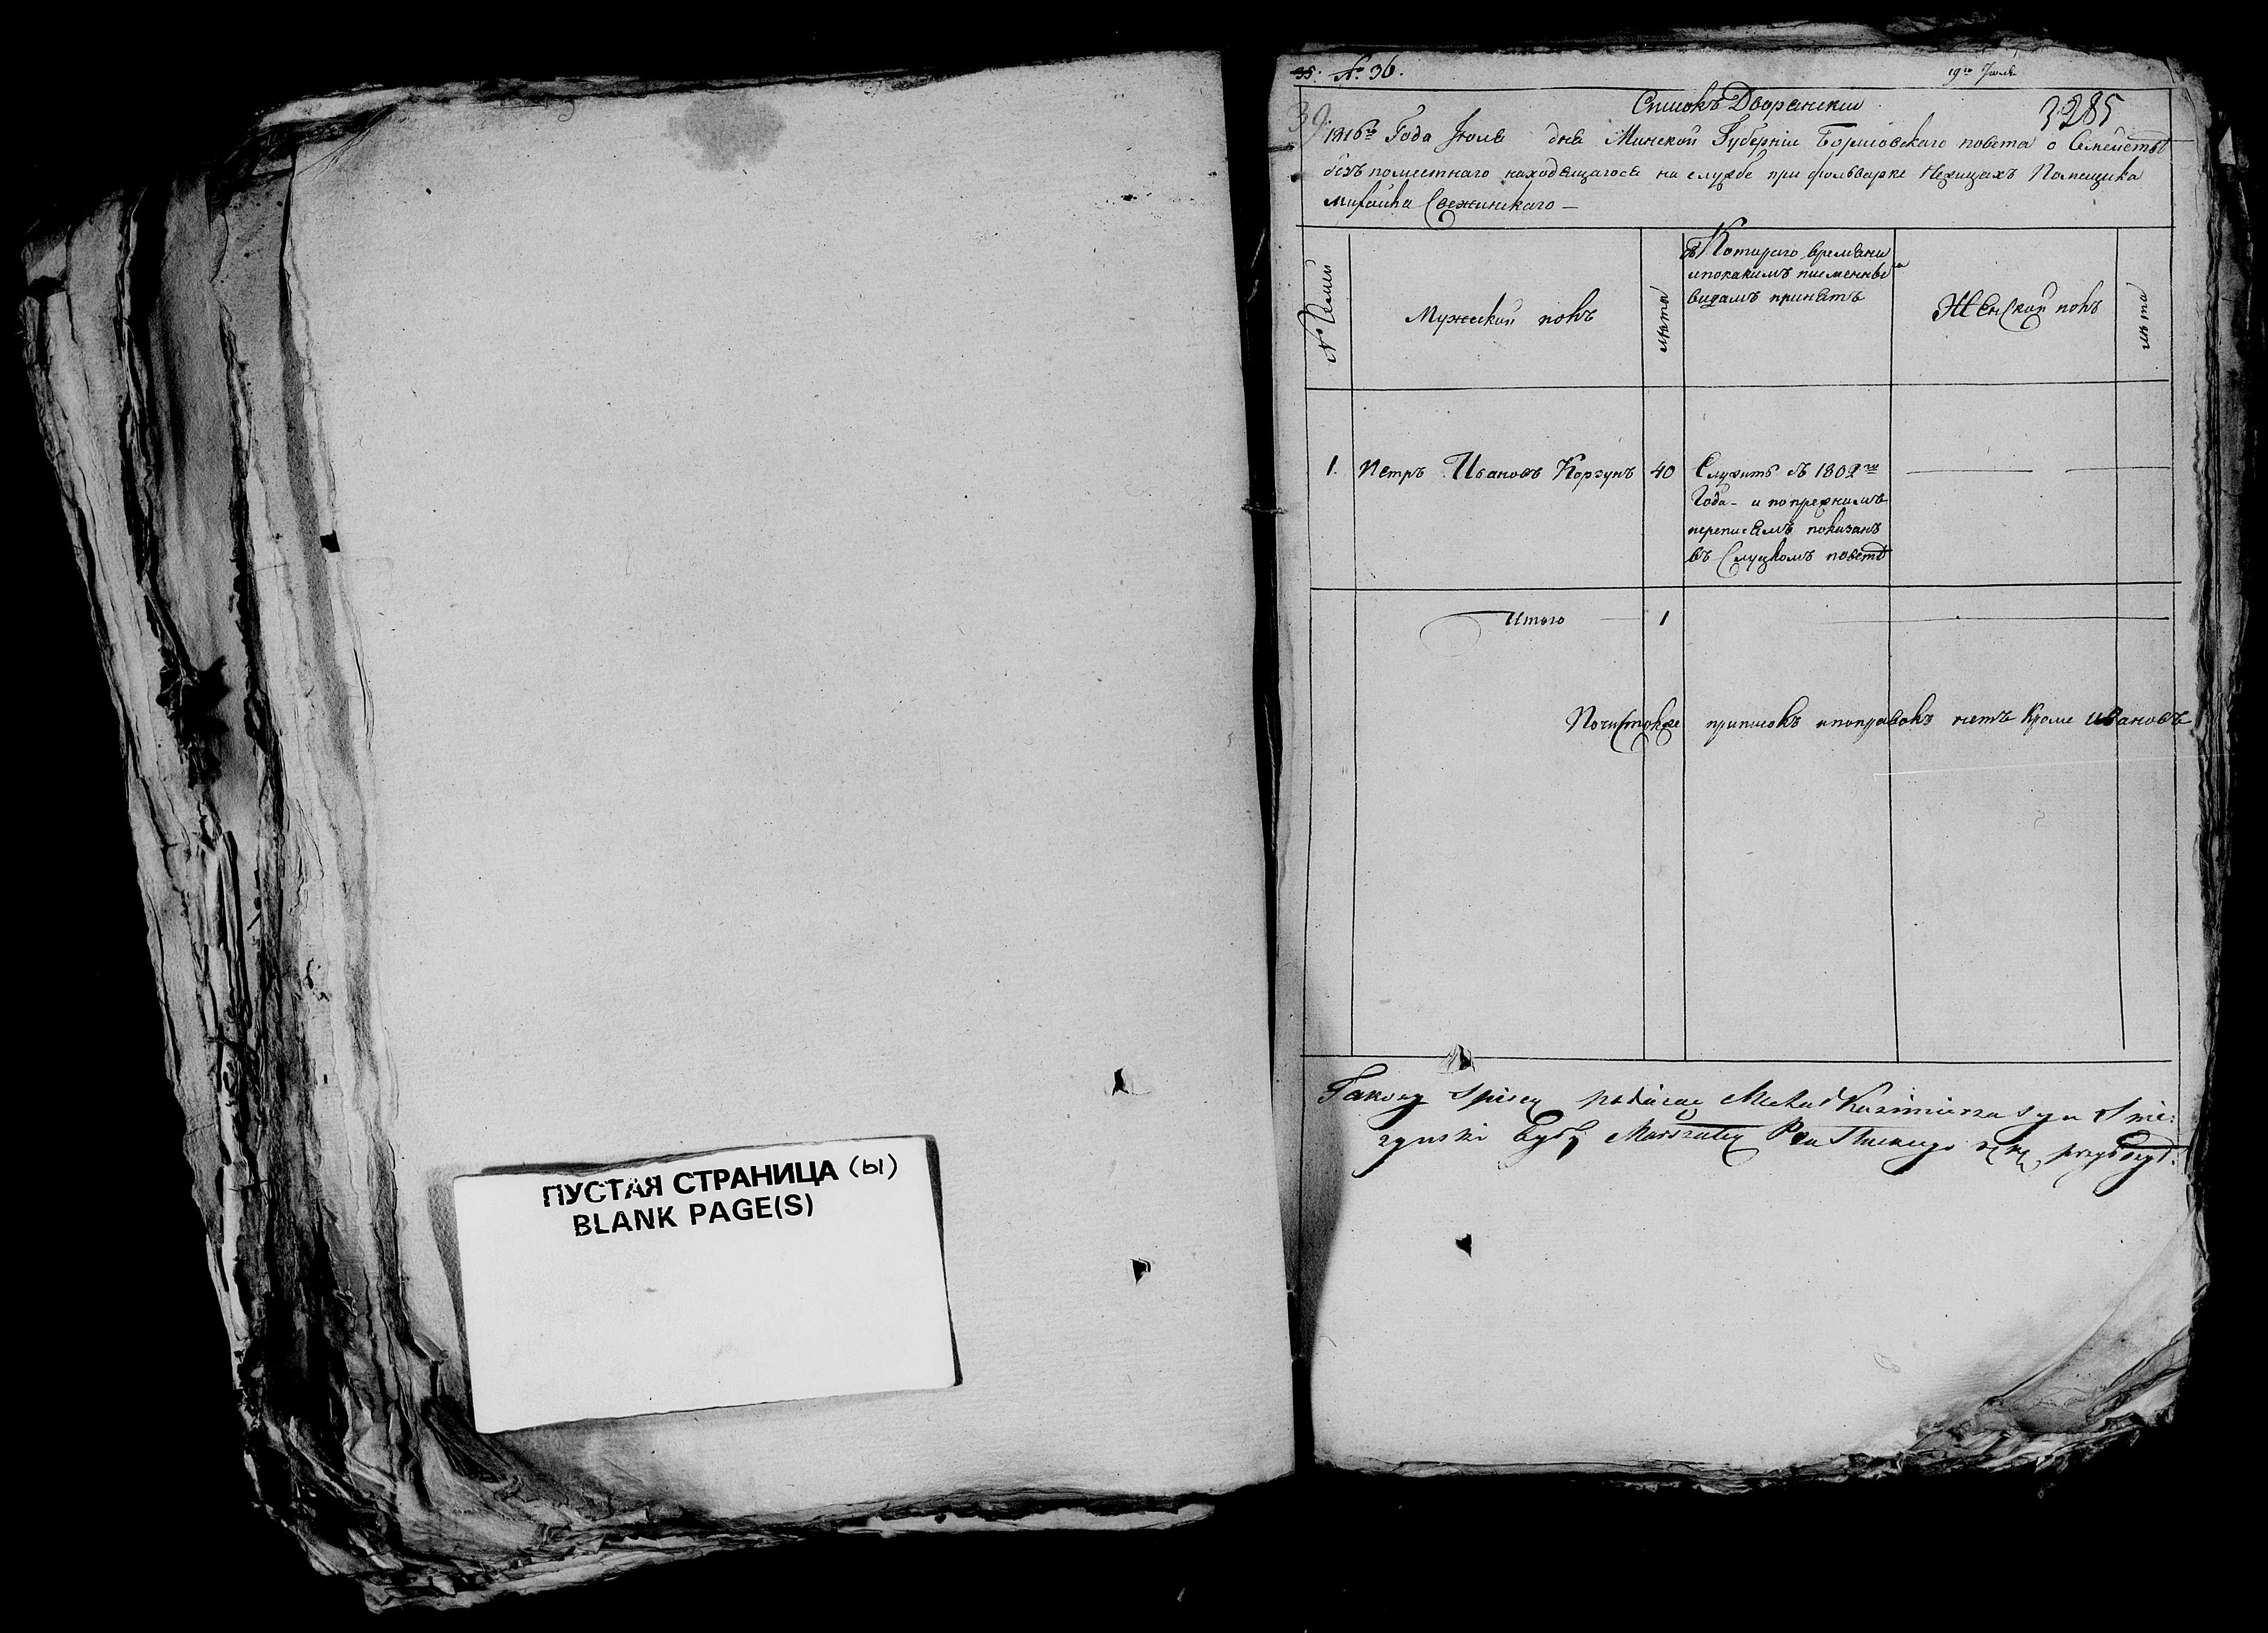 ПУСТАЯ СТРАНИЦА (ы)
BLANK PAGE(S)
35. № 36.
19го Июля
Списокъ Дворянскiи
3285
39.
1816го Года Июля дня Минской Губернiи Борисовскаго повета о Семействе
безъпоместнаго находящагося на службе при фольварке Нехицахъ Помещика
Михаила Свежинскаго —
№ Семей
Мужеский полъ
лѣта
съ Котораго времяни
ипокакимъ писменны
видамъ принятъ
ЖЕнской полъ
лѣта
1. Петръ Ивановъ Корзунъ 40 Служитъ съ 1802го
Года - и попрежнимъ
переписямъ показанъ
въ Слуцкомъ поветѣ
Итого 1
Почисткже приписокъ ипоправокъ нетъ Кроме Ивановъ
Takowy Spisek podaiąc Michał Kazimierza syn Swie:
rzynski były Marszałek Ptu